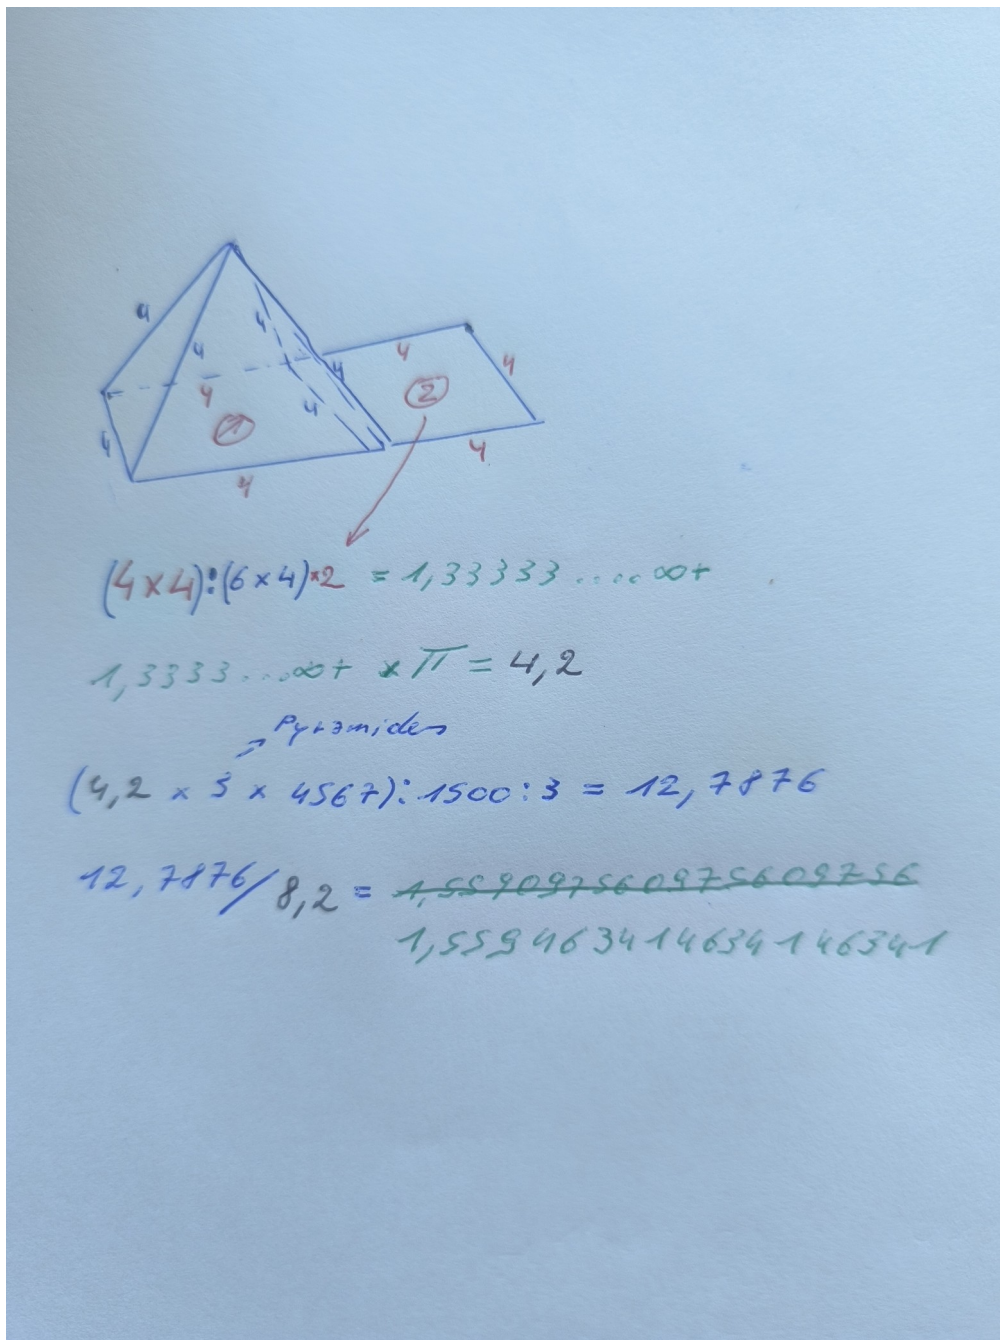 4
4
4
4
4
4
4
4
4
4
4
4
1
2
(4×4):(6×4)×2 = 1,33333....∞+
1,3333...∞+ × π = 4,2
Pyramides
(4,2 × 3 × 4567):1500:3 = 12,7876
12,7876/8,2 = 1,559097560975609756
1,559463414634146341